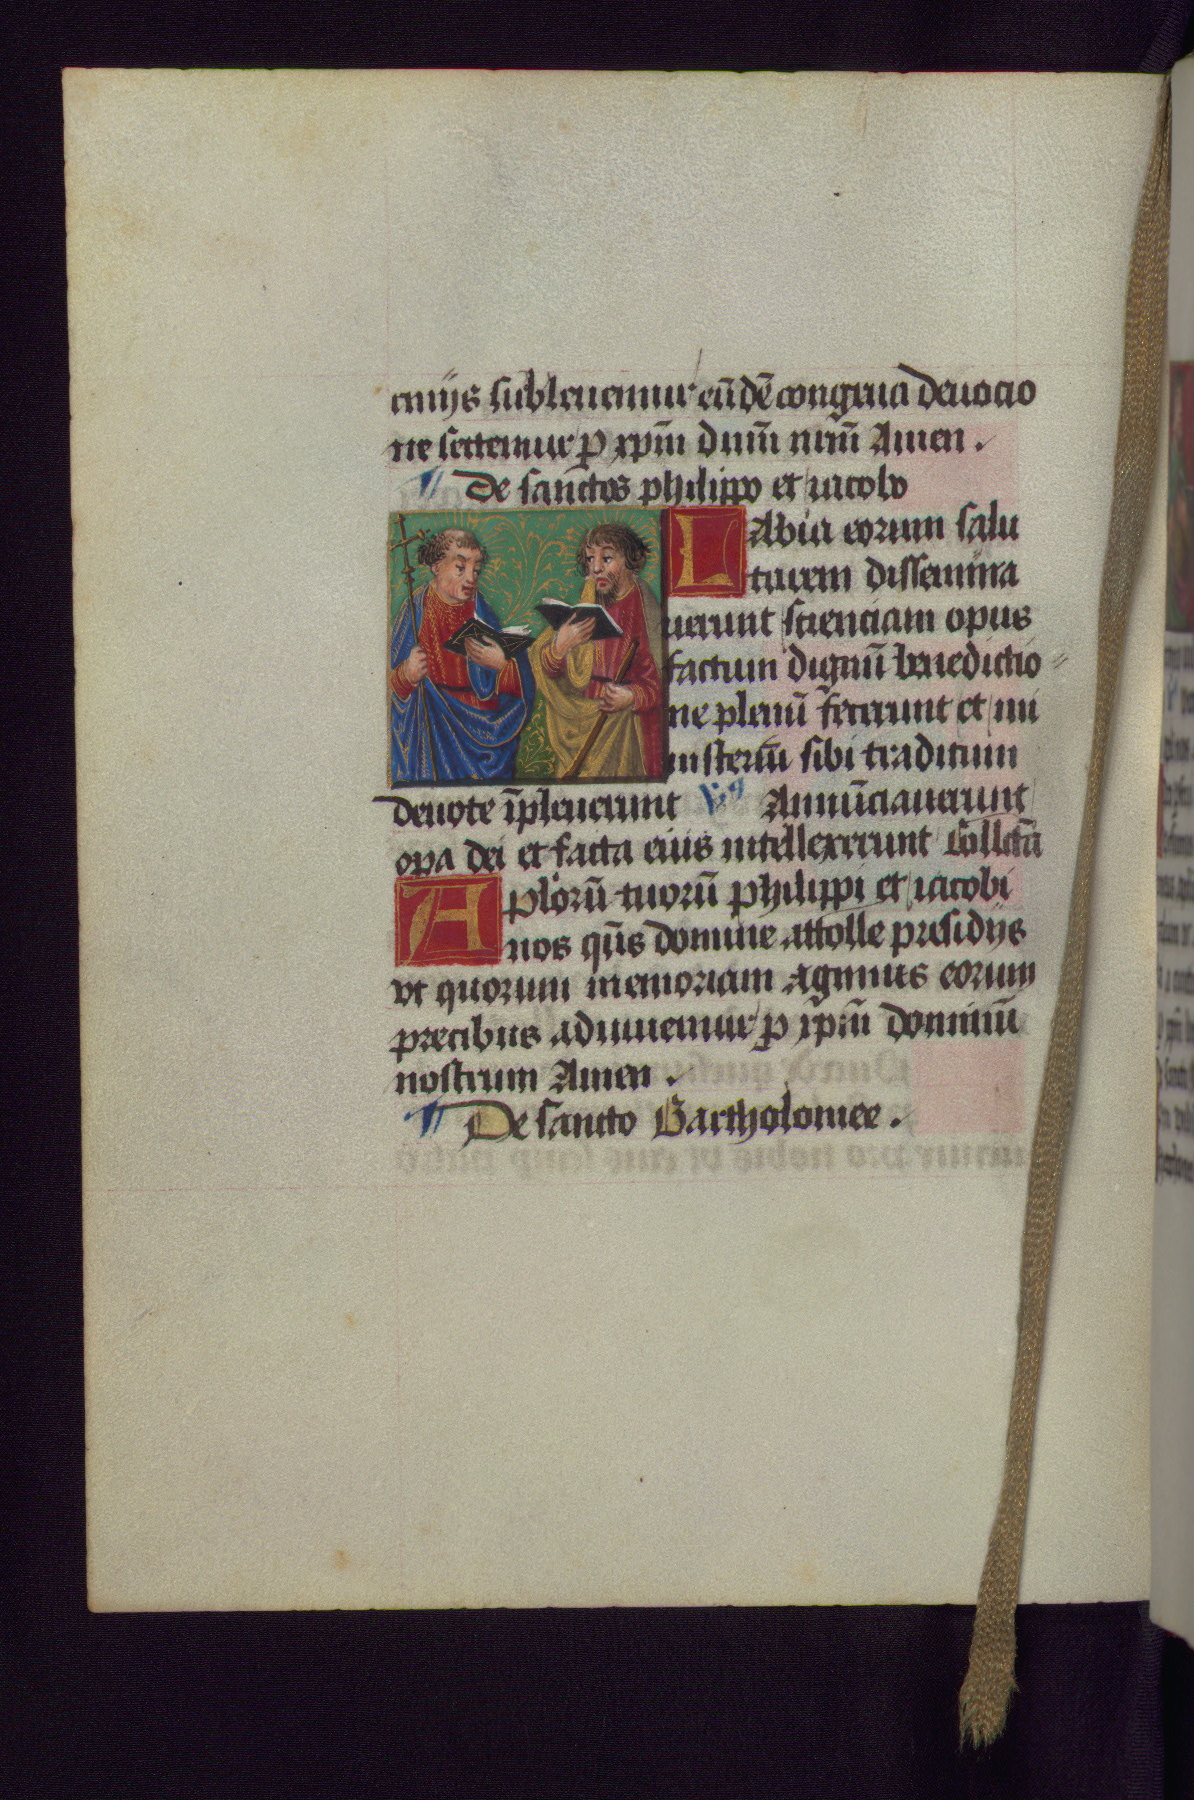 emijs subleuemur eūdē congrua deuocio
ne sectemur p xp̄m dnm̄ nrm̄ Amen .
De sanctos philippo et iacobo
LAbia eorum salu
tarem dissemina
uerunt scienciam opus
factum dignū benedictio
ne plenū fecerunt et mi
nisteriū sibi traditum
deuote īpleuerunt Vs Annūciauerunt
opa dei et facta eius intellexerunt Collectā
Aplorū tuorū philippi et iacobi
nos qūs domine attolle presidijs
vt quorum memoriam agimus eorum
precibus adiuuemur p xp̄m dominū
nostrum Amen .
De sancto Bartholomee .